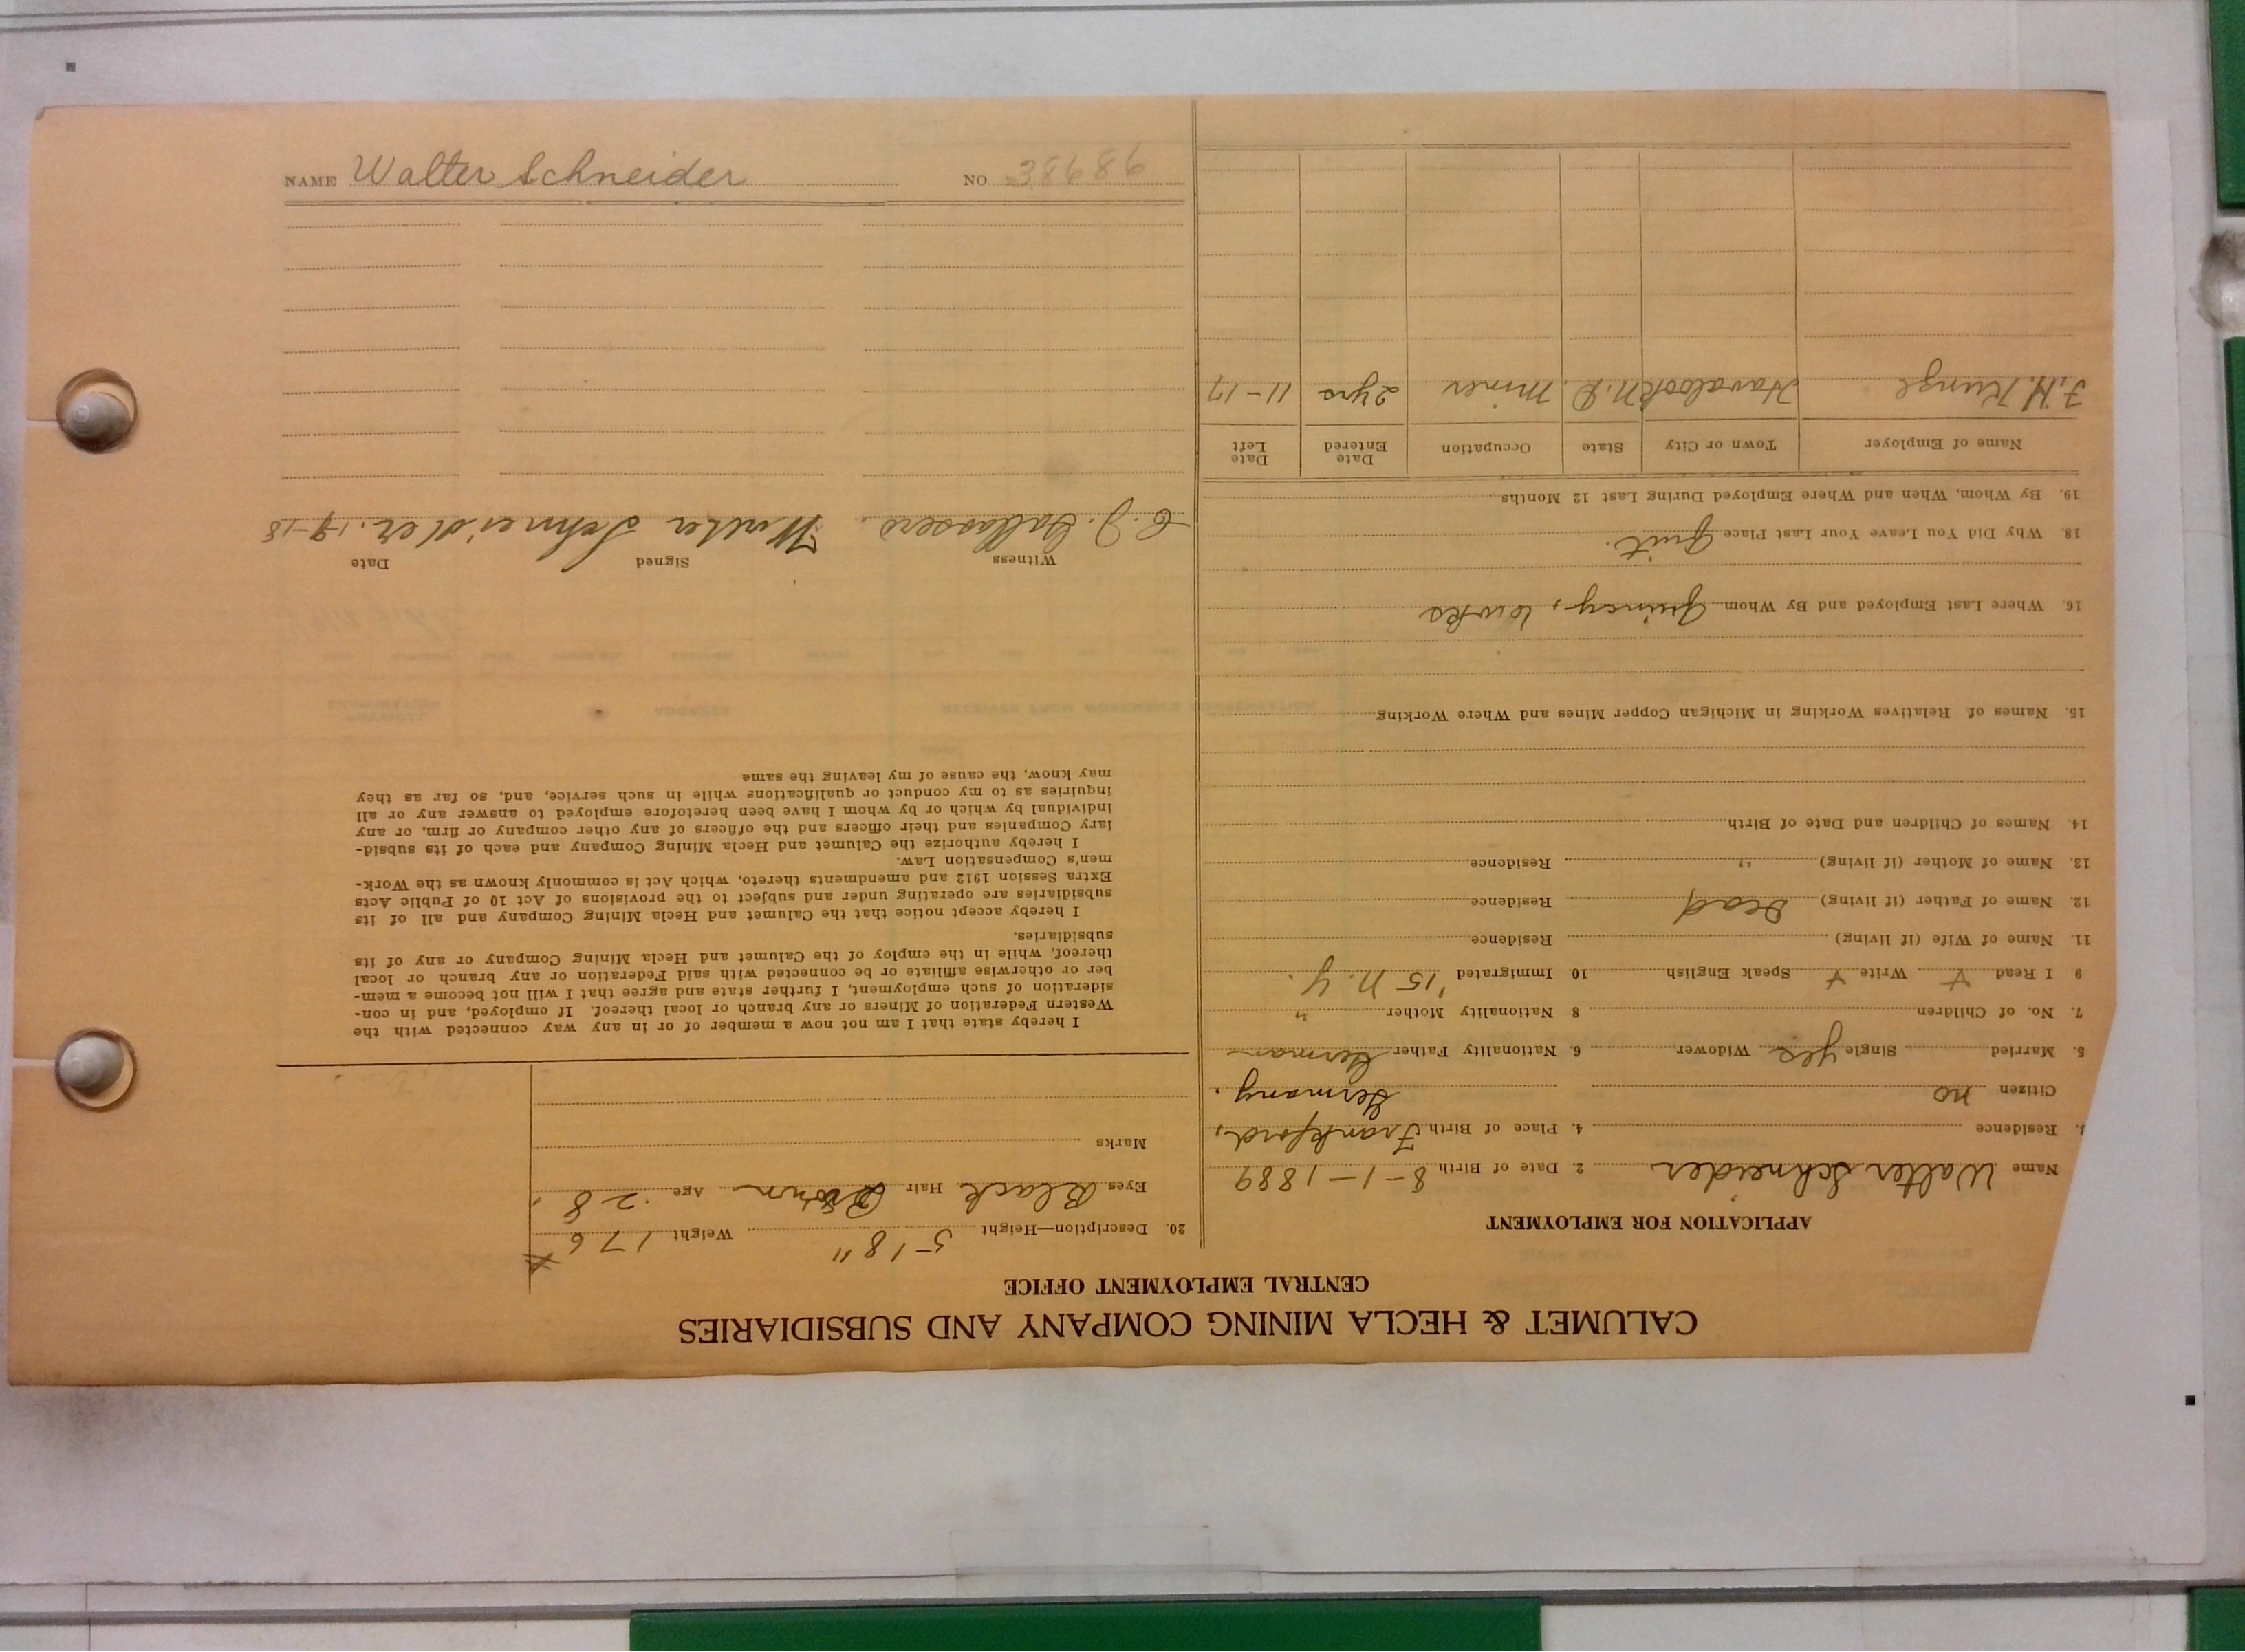 CALUMET & HECLA MINING COMPANY AND SUBSIDIARIES
CENTRAL EMPLOYMENT OFFICE
APPLICATION FOR EMPLOYMENT
Name Walter Schneider 2. Date of Birth 8-1-1889
3. Residence 4. Place of Birth Frankford,
Citizen no Germany.
5. Married Single yes Widower 6. Nationality Father German
7. No. of Children 8 Nationality Mother "
9 I Read Y Write Y Speak English 10 Immigrated '15 N.Y.
11. Name of Wife (if living) Residence
12. Name of Father (if living) Dead Residence
13. Name of Mother (if living) " Residence
14. Names of Children and Date of Birth
15. Names of Relatives Working in Michigan Copper Mines and Where Working
16. Where Last Employed and By Whom Quincy, works
18. Why Did You Leave Your Last Place Quit.
19. By Whom, When and Where Employed During Last 12 Months
Name of Employer Town or City State Occupation Date Entered Date Left
Havalock N.D. Miner 2 yrs 11-17
20. Description—Height 5'8" Weight 176 #
Eyes Black Hair Brown Age 28.
Marks
I hereby state that I am not now a member of or in any way connected with the
Western Federation of Miners or any branch or local thereof. If employed, and in con-
sideration of such employment, I further state and agree that I will not become a mem-
ber or otherwise affiliate or be connected with said Federation or any branch or local
thereof, while in the employ of the Calumet and Hecla Mining Company or any of its
subsidiaries.
I hereby accept notice that the Calumet and Hecla Mining Company and all of its
subsidiaries are operating under and subject to the provisions of Act 10 of Public Acts
Extra Session 1912 and amendments thereto, which Act is commonly known as the Work-
men's Compensation Law.
I hereby authorize the Calumet and Hecla Mining Company and each of its subsid-
iary Companies and their officers and the officers of any other company or firm, or any
individual by which or by whom I have been heretofore employed to answer any or all
inquiries as to my conduct or qualifications while in such service, and, so far as they
may know, the cause of my leaving the same
Witness Signed Date
C. J. Walter Schneider. 1-9-18
NAME Walter Schneider NO 38686